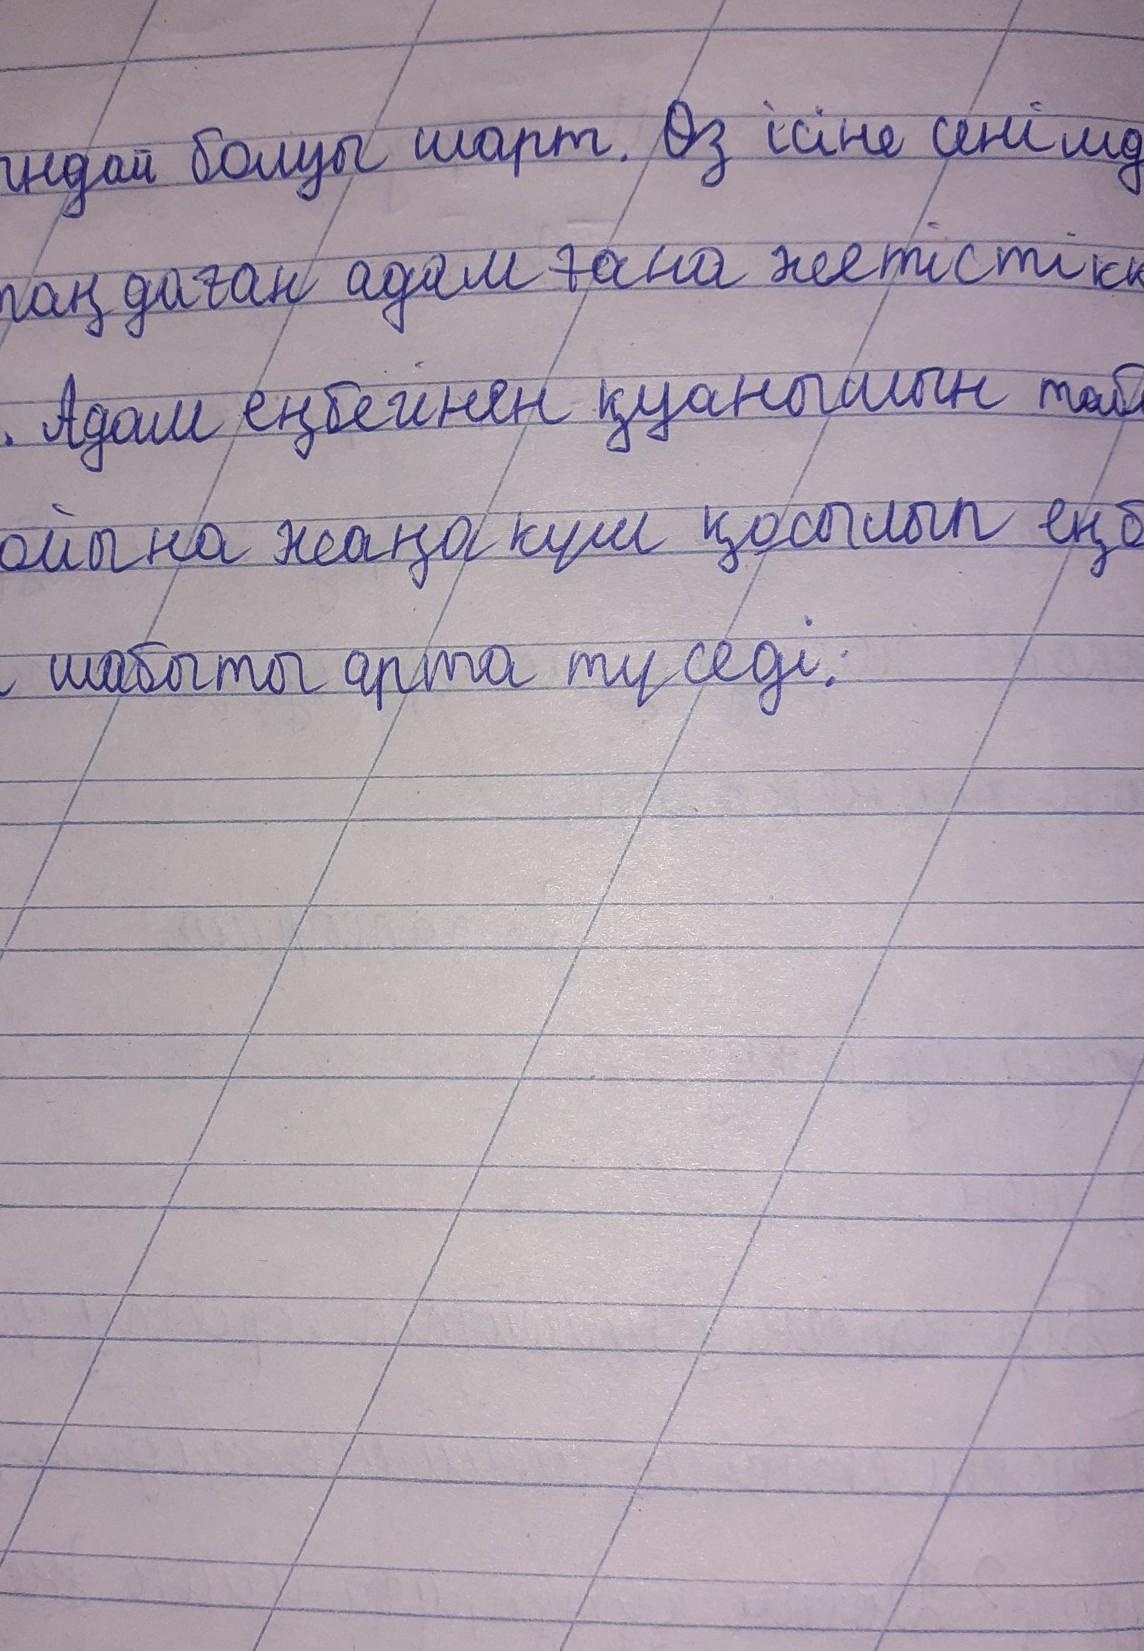 ындай болуы шарт. Өз ісіне сенімд
таңдаған адам ғана жетістікк
. Адам еңбегінен қуанышын таб
ойына жаңа күш қосылып еңб
шабыты арта түседі.